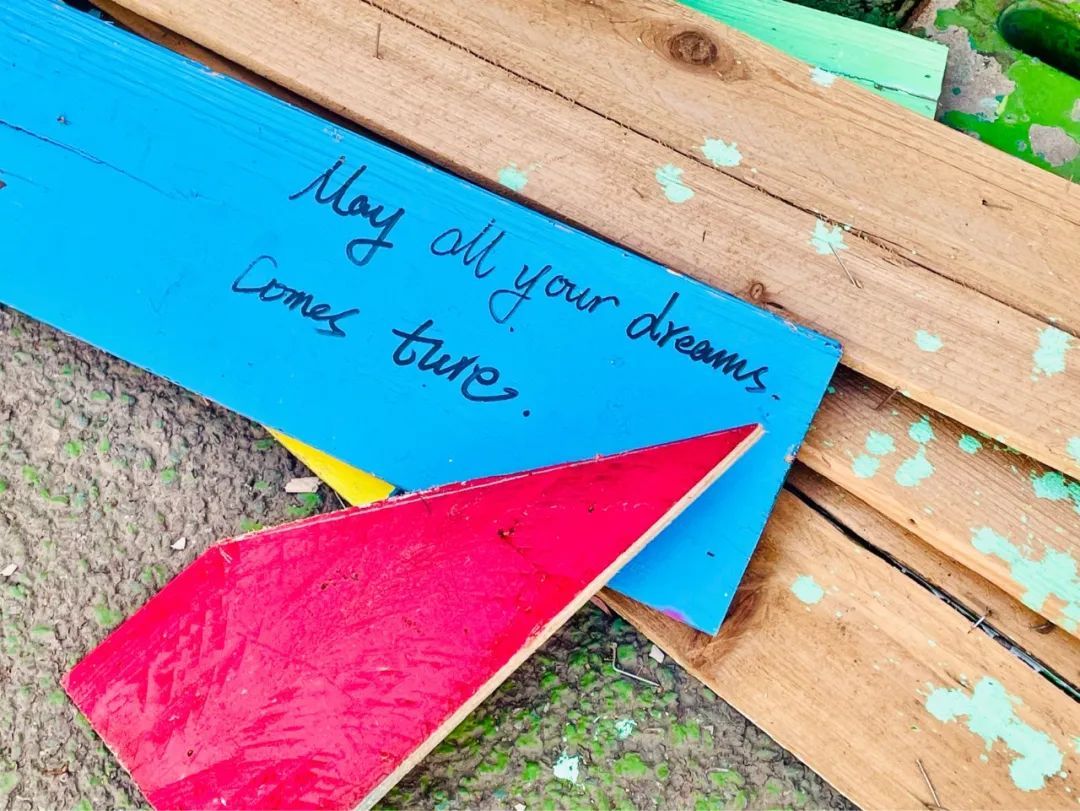 May all your dreams.
Comes ture.